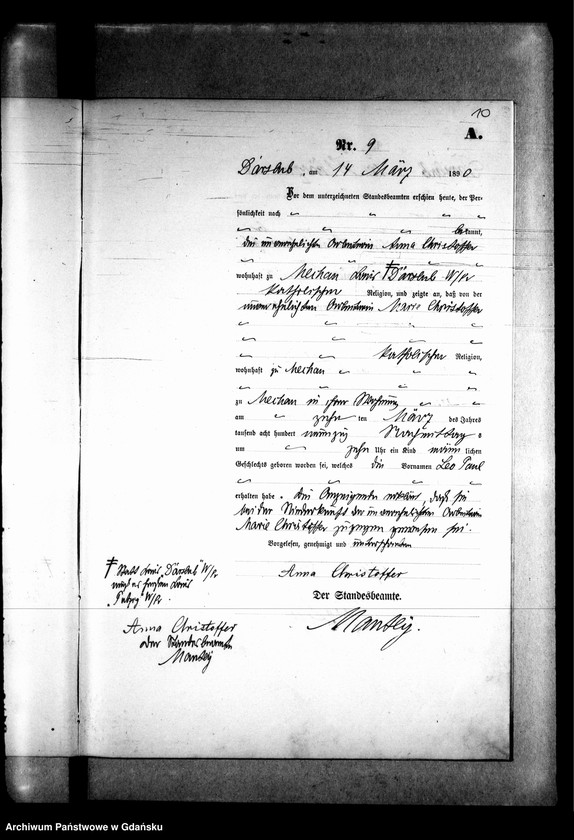 10
A.
Nr. 9
Darslub, am 14 März 1890
Vor dem unterzeichneten Standesbeamten erschien heute, der Per-
sönlichkeit nach
bekannt,
die unverehelichte Arbeiterin Anna Christoffer
wohnhaft zu Mechau Kreis † Darslub W/Pr
katholischer Religion, und zeigte an, daß von der
unverehelichten Arbeiterin Marie Christoffer
katholischer Religion,
wohnhaft zu Mechau
zu Mechau in ihrer Wohnung
am zehn ten März des Jahres
tausend acht hundert neunzig Nachmittag s
um zehn Uhr ein Kind männlichen
Geschlechts geboren worden sei, welches die Vornamen Leo Paul
erhalten habe. Die Anzeigende erklärt, daß sie
bei der Niederkunft der unverehelichten Arbeiterin
Marie Christoffer zugegen gewesen sei.
Vorgelesen, genehmigt und unterschrieben
Anna Christoffer
Der Standesbeamte.
† Statt Kreis "Darslub" W/Pr
muß es heißen Kreis
"Putzig" W/Pr.
Anna Christoffer
der Standesbeamte
Archiwum Państwowe w Gdańsku